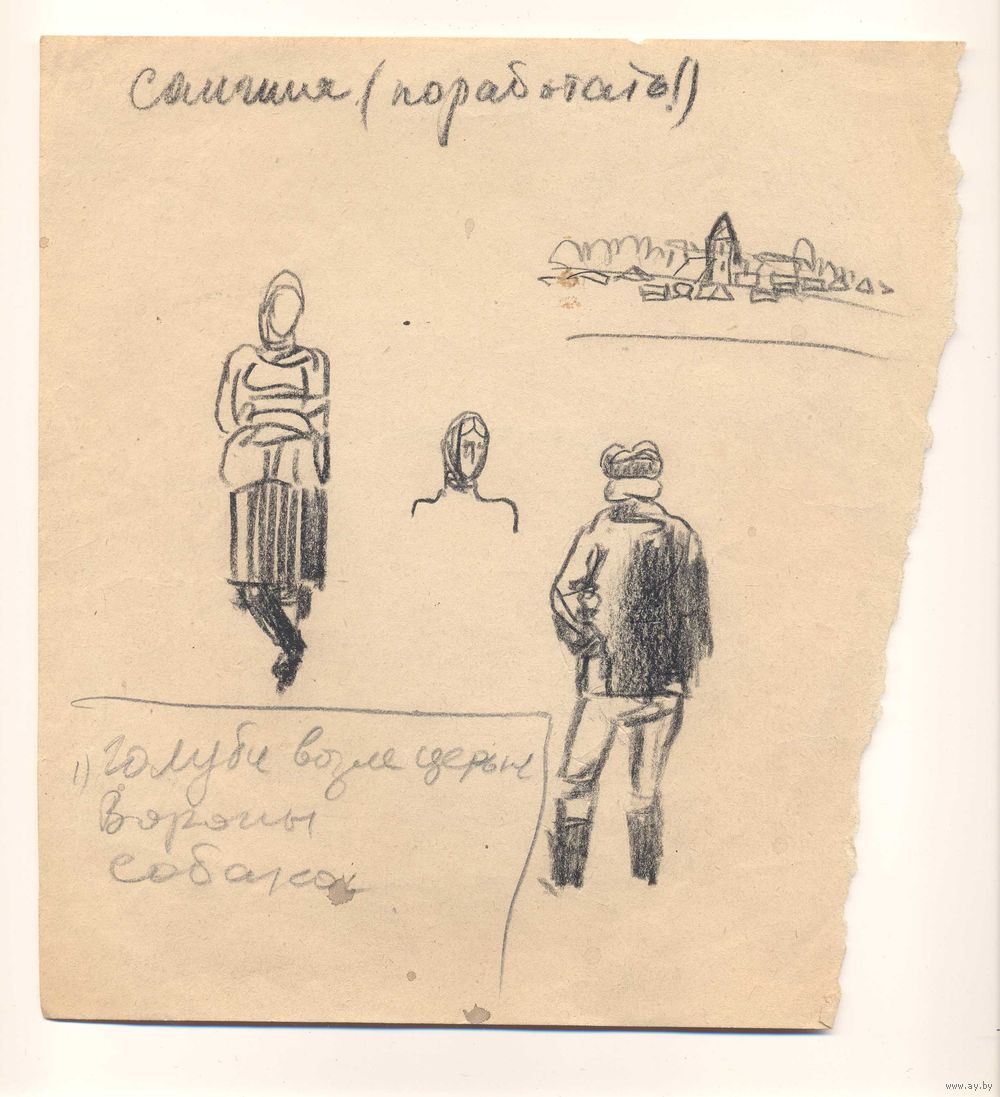 (поработать!)
1) Голуби возле церкви
Вороны
собака
www.ay.by